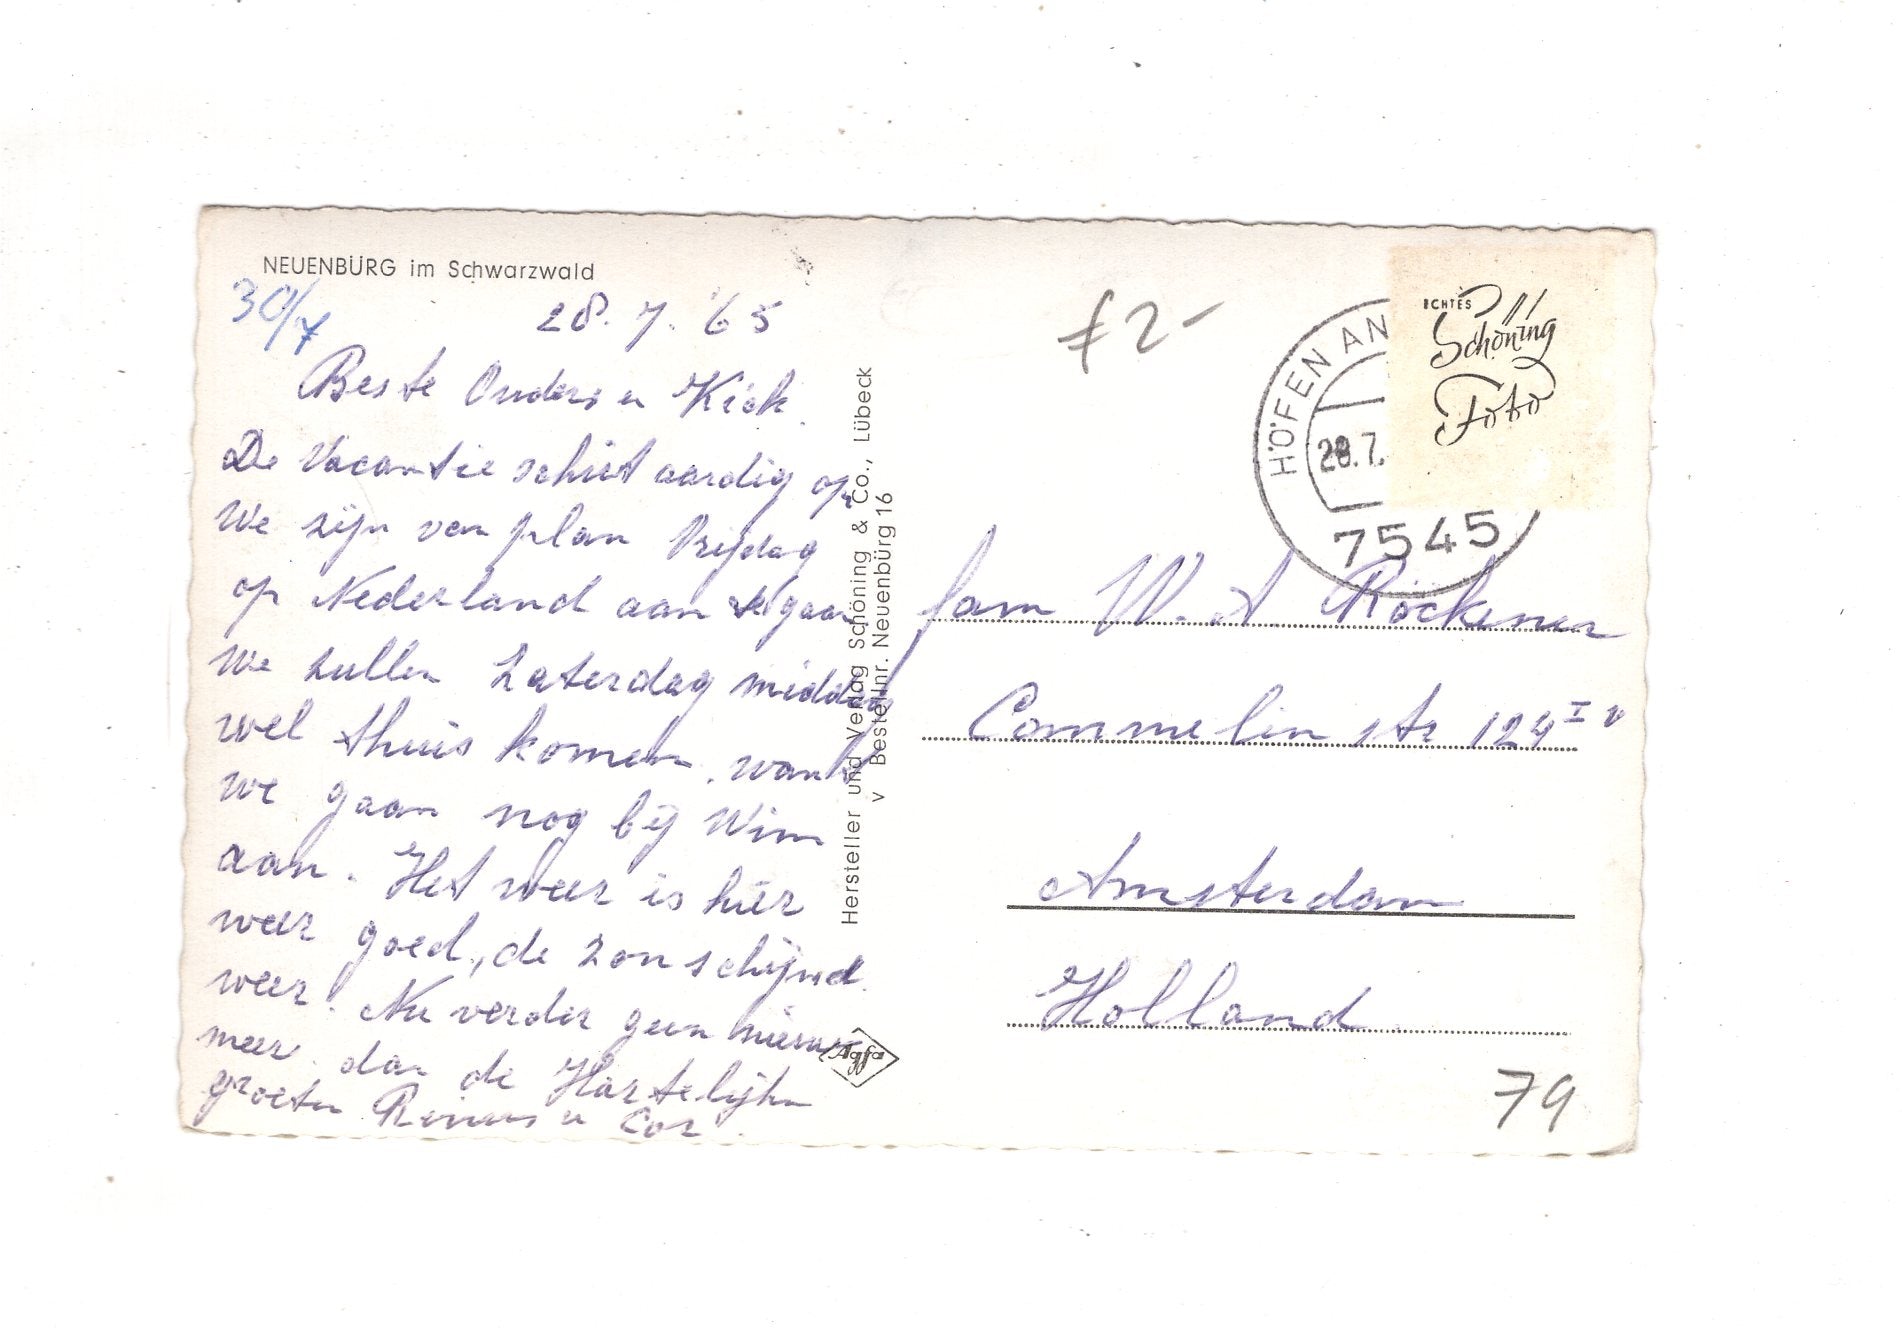 NEUENBÜRG im Schwarzwald
30/7
28.7.'65
Beste Ouders en Kick.
De Vacantie schiet aardig op,
We zijn van plan Vrijdag
op Nederland aan te gaan
We zullen Zaterdag middag
wel thuis komen, want
we gaan nog bij Wim
aan. Het weer is hier
weer goed, de zon schijnd
weer. Nu verder geen nieuws
meer dan de Hartelijke
groeten Reinus en Cor.
Hersteller und Verlag Schöning & Co., Lübeck
v Bestellnr. Neuenbürg 16
Agfa
f 2-
HÖFEN AN
28.7.
7545
ECHTES
Schöning
Foto
fam W. A. Röckener
Commelin str 124 I v
Amsterdam
Holland
79